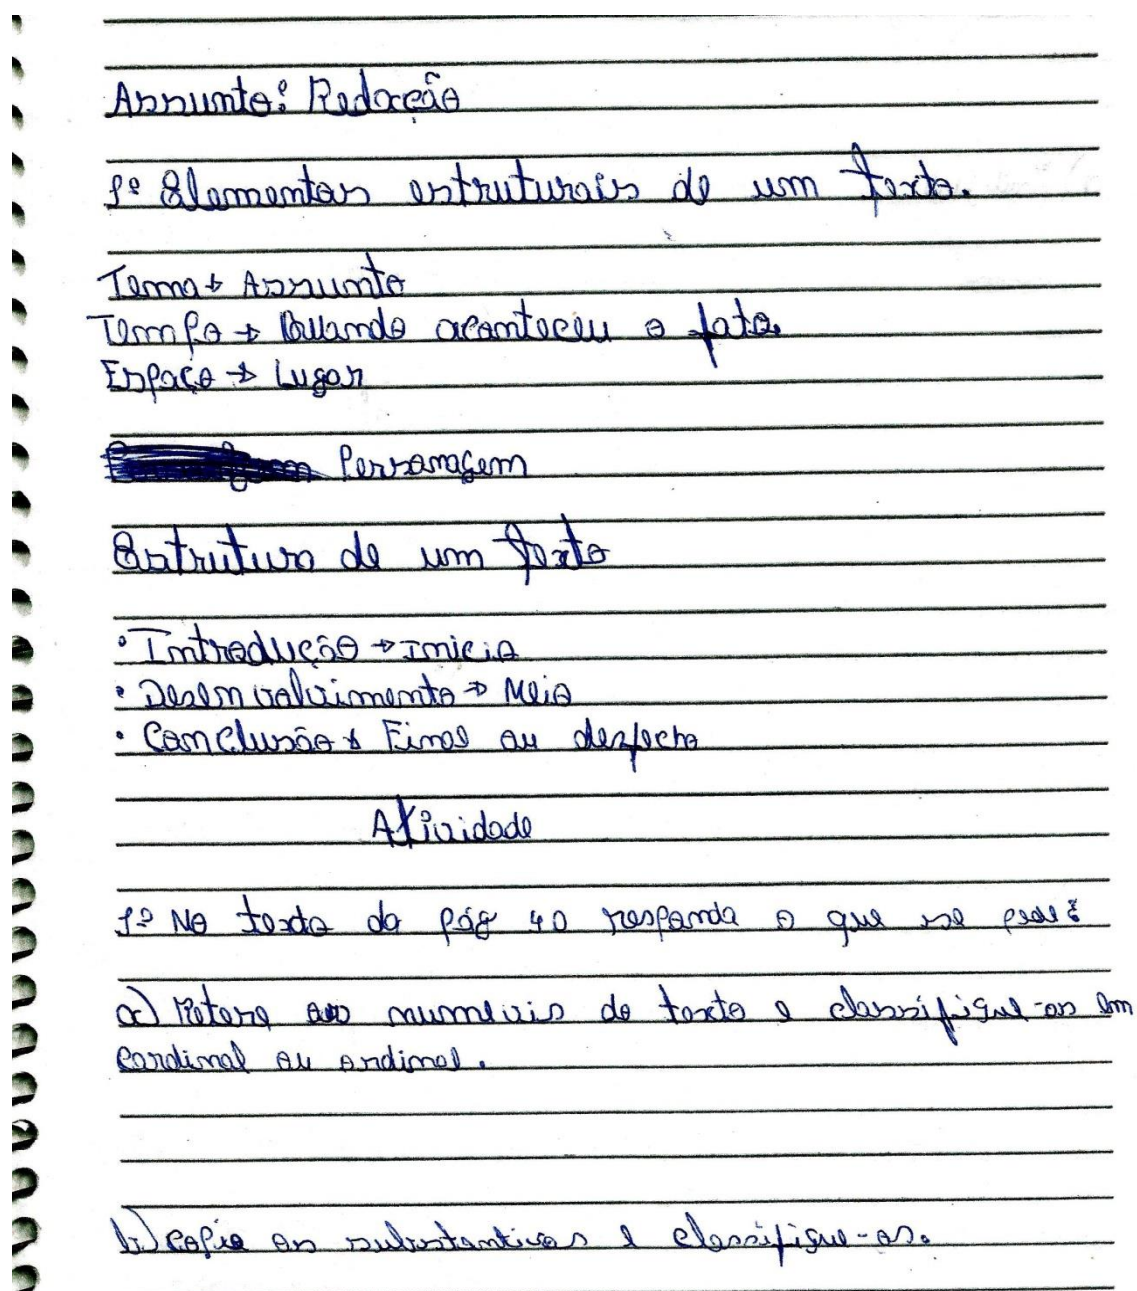 Assunto: Redação
1º Elementos estruturais de um texto.
Tema → Assunto
Tempo → Quando aconteceu o fato.
Espaço → Lugar
Personagem
Estrutura de um texto
• Introdução → Inicio
• Desenvolvimento → Meio
• Conclusão → Final ou desfecho
Atividade
1º No texto da pág 40 responda o que se pede:
a) Retire os numerais do texto e classifique-os em
Cardinal ou ordinal.
b) copie os substantivos e classifique-os.